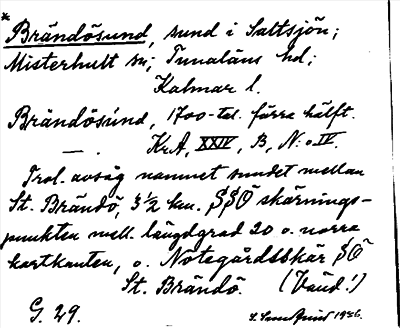 * Brändösund, sund i Saltsjön;
Misterhult sn; Tunaläns hd;
Kalmar l.
Brändösúnd, 1700-tal. förra hälft.
— . KrA, XXIV, B, N:o IV.
Trol. avsåg namnet sundet mellan
St. Brändö, 3 1/2 km. SSÖ skärnings-
punkten mell. längdgrad 20 o. norra
kartkanten, o. Notegårdsskär SÖ
St. Brändö. (Vänd!)
G. 29. 1936.